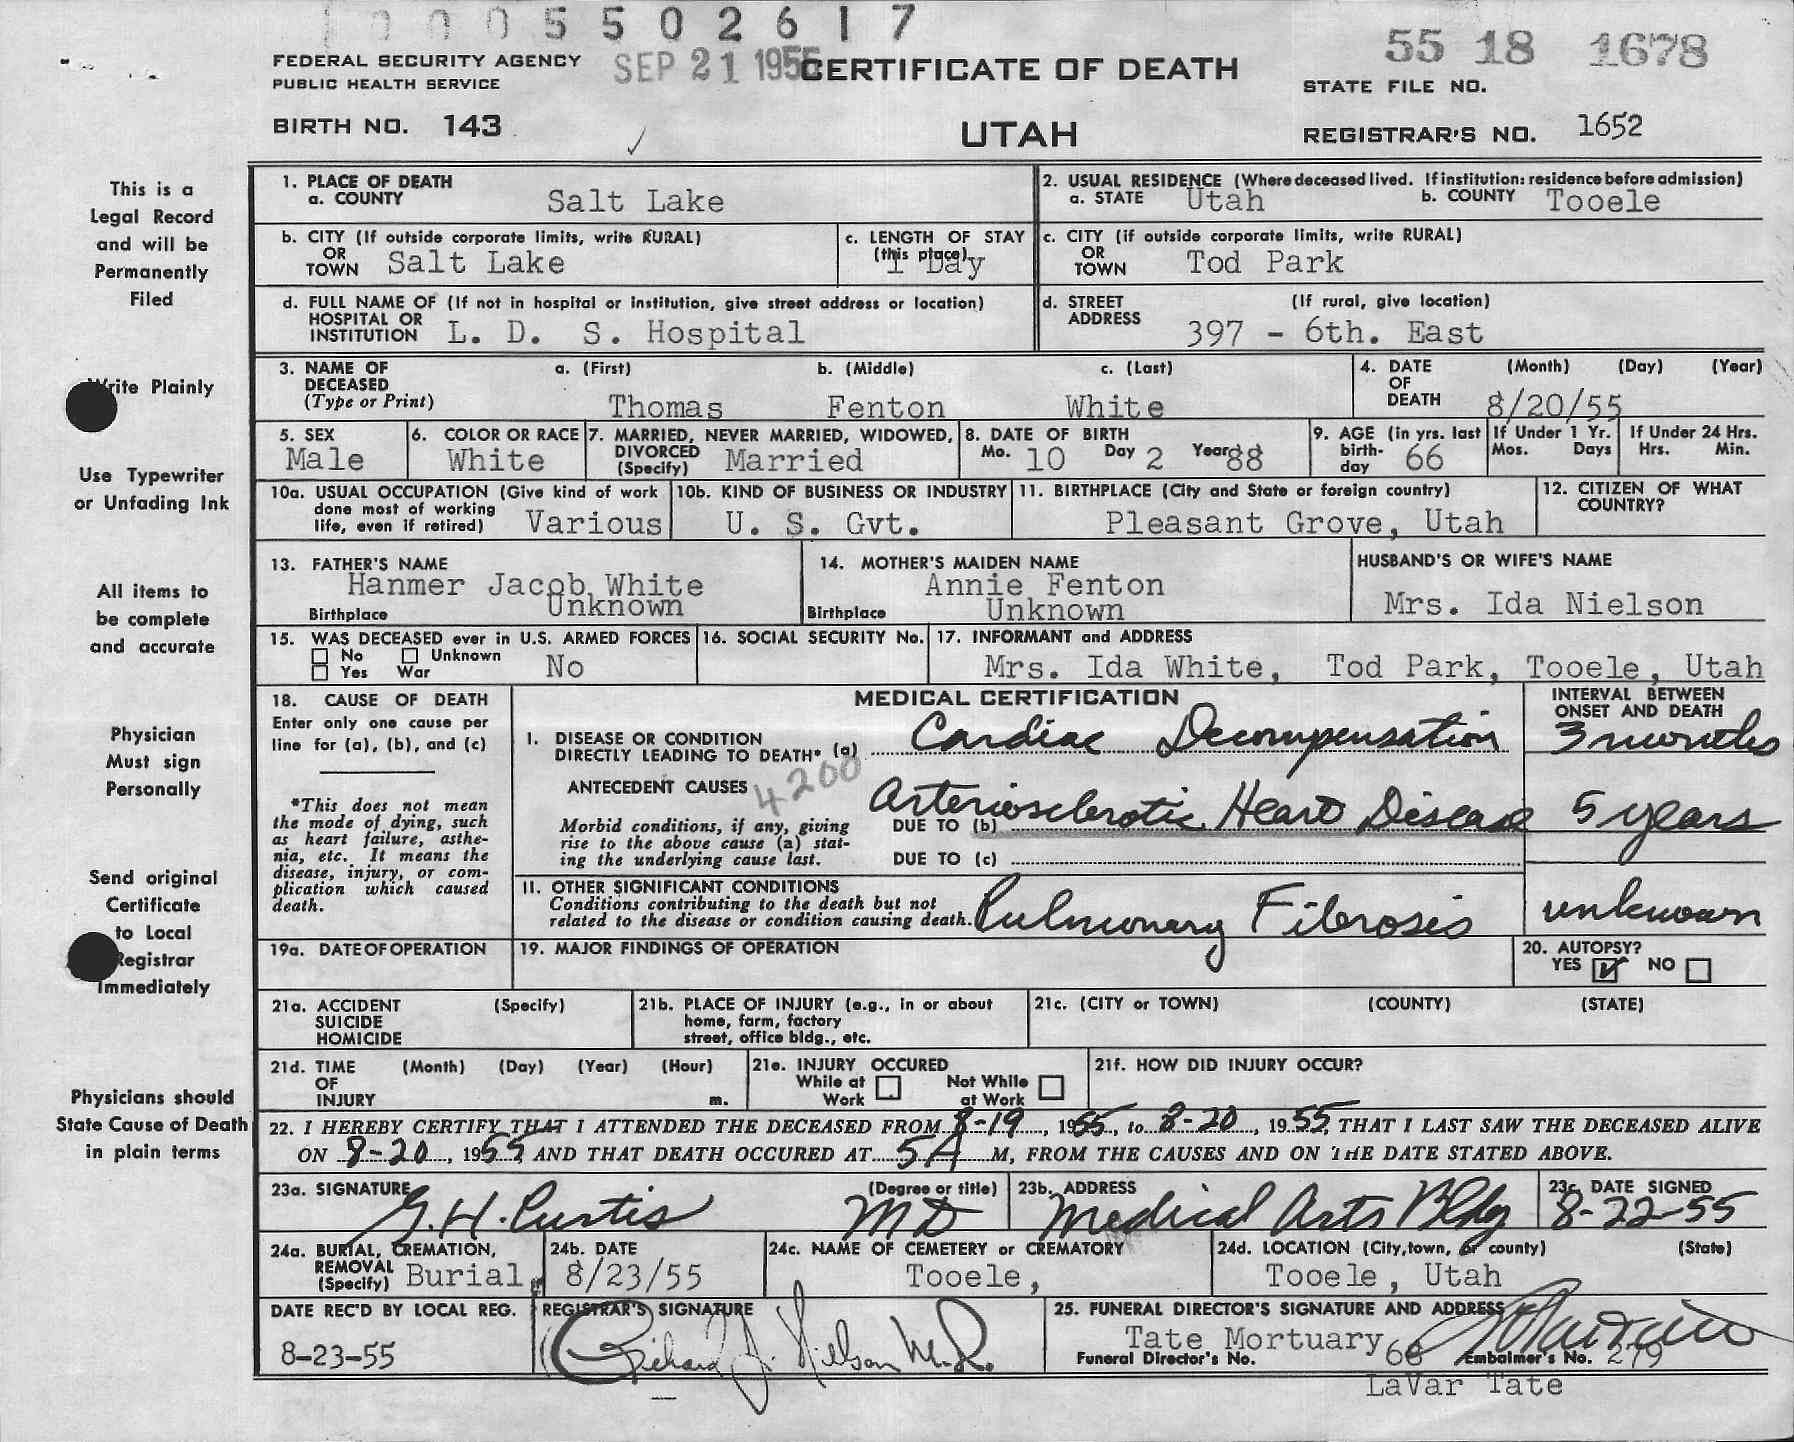 0005502617
FEDERAL SECURITY AGENCY
PUBLIC HEALTH SERVICE
SEP 21 1955
CERTIFICATE OF DEATH
55 18 1678
STATE FILE NO.
BIRTH NO. 143
UTAH
REGISTRAR'S NO. 1652
This is a
Legal Record
and will be
Permanently
Filed
Write Plainly
Use Typewriter
or Unfading Ink
All items to
be complete
and accurate
Physician
Must sign
Personally
Send original
Certificate
to Local
Registrar
Immediately
Physicians should
State Cause of Death
in plain terms
1. PLACE OF DEATH
a. COUNTY Salt Lake
2. USUAL RESIDENCE (Where deceased lived. If institution: residence before admission)
a. STATE Utah b. COUNTY Tooele
b. CITY (If outside corporate limits, write RURAL)
OR
TOWN Salt Lake
c. LENGTH OF STAY
(this place)
1 Day
c. CITY (if outside corporate limits, write RURAL)
OR
TOWN Tod Park
d. FULL NAME OF (If not in hospital or institution, give street address or location)
HOSPITAL OR
INSTITUTION L. D. S. Hospital
d. STREET (If rural, give location)
ADDRESS 397 - 6th. East
3. NAME OF DECEASED
(Type or Print)
a. (First) b. (Middle) c. (Last)
Thomas Fenton White
4. DATE OF DEATH (Month) (Day) (Year)
8/20/55
5. SEX
Male
6. COLOR OR RACE
White
7. MARRIED, NEVER MARRIED, WIDOWED,
DIVORCED
(Specify) Married
8. DATE OF BIRTH
Mo. 10 Day 2 Year 88
9. AGE (in yrs. last
birth-
day 66
If Under 1 Yr.
Mos. Days
If Under 24 Hrs.
Hrs. Min.
10a. USUAL OCCUPATION (Give kind of work
done most of working
life, even if retired) Various
10b. KIND OF BUSINESS OR INDUSTRY
U. S. Gvt.
11. BIRTHPLACE (City and State or foreign country)
Pleasant Grove, Utah
12. CITIZEN OF WHAT
COUNTRY?
13. FATHER'S NAME
Hanmer Jacob White
Birthplace Unknown
14. MOTHER'S MAIDEN NAME
Annie Fenton
Birthplace Unknown
HUSBAND'S OR WIFE'S NAME
Mrs. Ida Nielson
15. WAS DECEASED ever in U.S. ARMED FORCES
No Unknown
Yes War
No
16. SOCIAL SECURITY No.
17. INFORMANT and ADDRESS
Mrs. Ida White, Tod Park, Tooele, Utah
18. CAUSE OF DEATH
Enter only one cause per
line for (a), (b), and (c)
*This does not mean
the mode of dying, such
as heart failure, asthe-
nia, etc. It means the
disease, injury, or com-
plication which caused
death.
MEDICAL CERTIFICATION
INTERVAL BETWEEN
ONSET AND DEATH
I. DISEASE OR CONDITION
DIRECTLY LEADING TO DEATH* (a) Cardiac Decompensation 3 months
ANTECEDENT CAUSES 4200
Morbid conditions, if any, giving
rise to the above cause (a) stat-
ing the underlying cause last.
DUE TO (b) Arteriosclerotic Heart Disease 5 years
DUE TO (c)
11. OTHER SIGNIFICANT CONDITIONS
Conditions contributing to the death but not
related to the disease or condition causing death. Pulmonary Fibrosis unknown
19a. DATE OF OPERATION
19. MAJOR FINDINGS OF OPERATION
20. AUTOPSY?
YES NO
21a. ACCIDENT (Specify)
SUICIDE
HOMICIDE
21b. PLACE OF INJURY (e.g., in or about
home, farm, factory
street, office bldg., etc.
21c. (CITY or TOWN) (COUNTY) (STATE)
21d. TIME (Month) (Day) (Year) (Hour)
OF
INJURY m.
21e. INJURY OCCURED
While at Work Not While at Work
21f. HOW DID INJURY OCCUR?
22. I HEREBY CERTIFY THAT I ATTENDED THE DECEASED FROM 8-19, 1955, to 8-20, 1955, THAT I LAST SAW THE DECEASED ALIVE
ON 8-20, 1955, AND THAT DEATH OCCURED AT 5 A M, FROM THE CAUSES AND ON THE DATE STATED ABOVE.
23a. SIGNATURE (Degree or title)
G. H. Curtis MD
23b. ADDRESS
Medical Arts Bldg
23c. DATE SIGNED
8-22-55
24a. BURIAL, CREMATION,
REMOVAL
(Specify) Burial
24b. DATE
8/23/55
24c. NAME OF CEMETERY or CREMATORY
Tooele,
24d. LOCATION (City, town, or county) (State)
Tooele, Utah
DATE REC'D BY LOCAL REG.
8-23-55
REGISTRAR'S SIGNATURE
Richard J. Nelson M.D.
25. FUNERAL DIRECTOR'S SIGNATURE AND ADDRESS
Tate Mortuary
Funeral Director's No. 66 Embalmer's No. 279
LaVar Tate